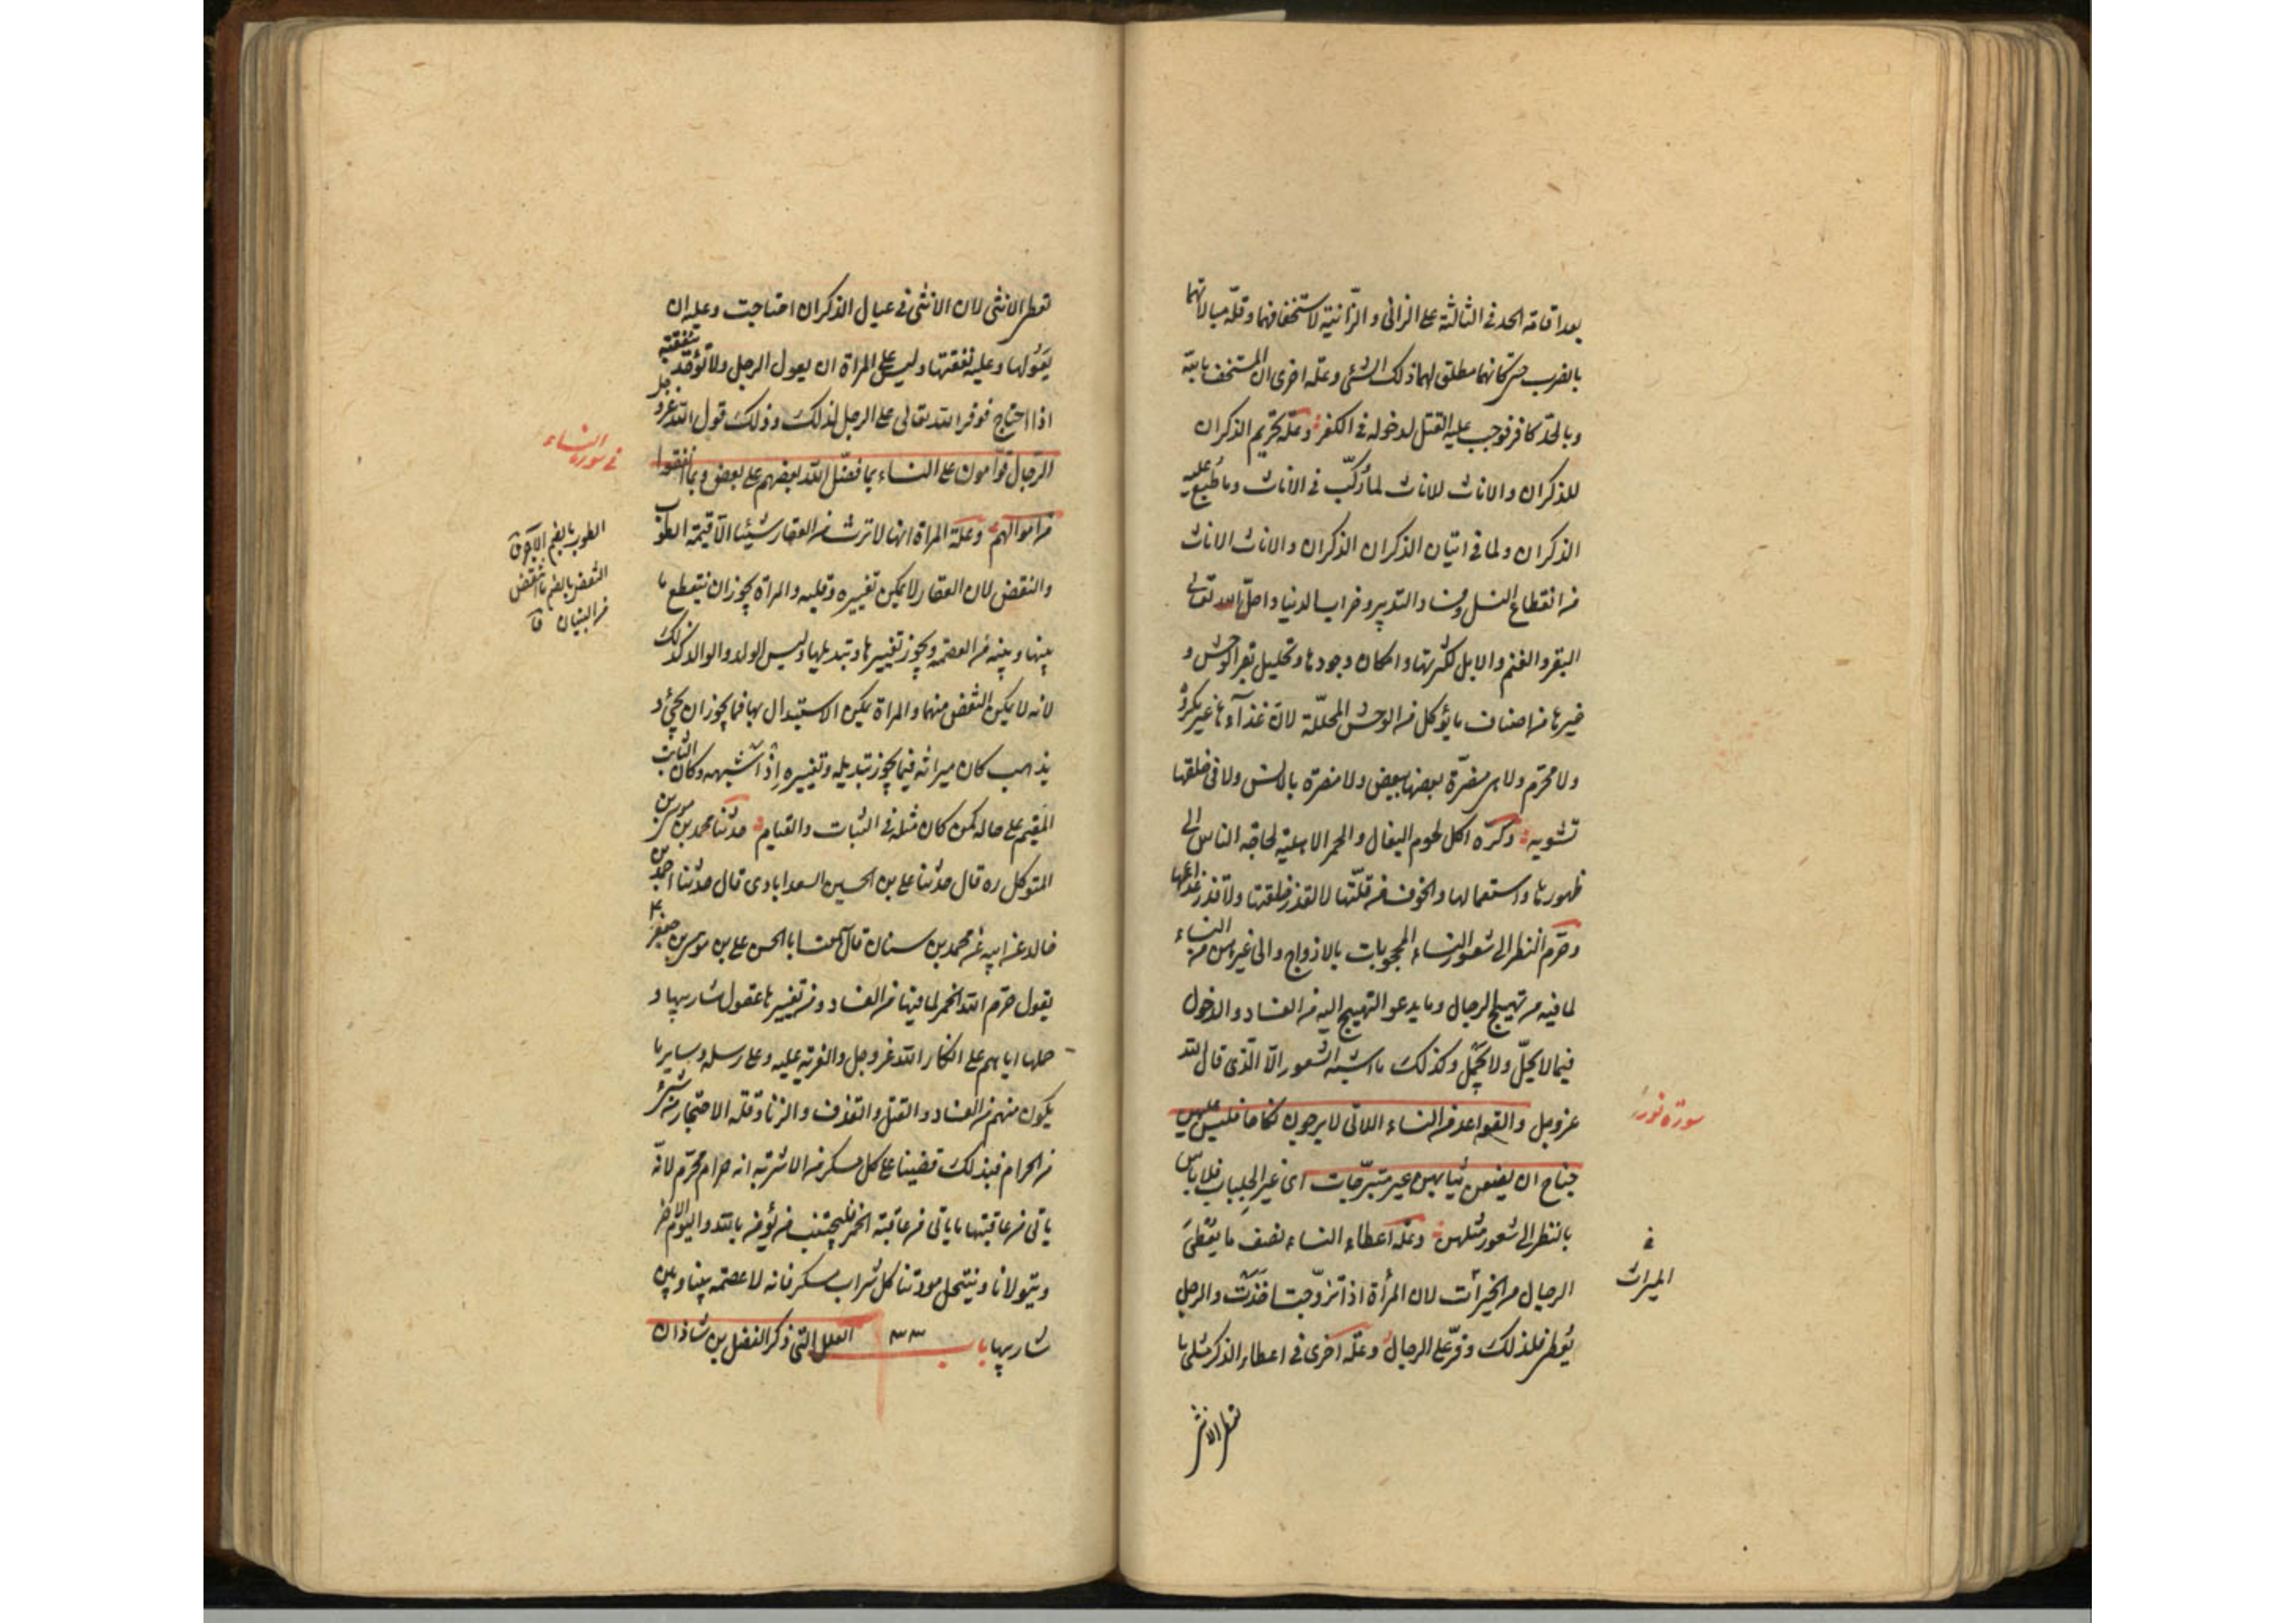 بعد اقامة الحد في الثالثة على الزاني و الزّانية لاستخفافهما و قلّة مبالاتهما
بالضرب حتى كانهما مطلق لهما ذلك الشئ و علة اخرى ان المستخف بالله
و بالحدّ كافر فوجب عليه القتل لدخوله في الكفر و علّة تحريم الذكران
للذكران و الاناث للاناث لما رُكّب في الاناث و ما طُبع عليه
الذكران و لما في اتيان الذكران الذكران و الاناث الاناث
من انقطاع النسل و فساد التدبير و خراب الدنيا و احلّ الله تعالى
البقر و الغنم و الابل لكثرتها و امكان وجودها و تحليل بقر الوحش و
غيرها من اصناف ما يؤكل من الوحش المحللّة لانّ غذآءها غير مكروه
و لا محرّم و لا هي مضرّة بعضها ببعض و لا مضرة بالانس و لا في خلقها
تشويه و كرّه اكل لحوم البغال و الحمر الاهليّة لحاجة الناس الى
ظهورها و استعمالها و الخوف من قلّتها لا لقذر خلقتها و لا قذر غذائها
و حرّم النظر الى شعور النساء المحجوبات بالازواج و الى غيرهن من النساء
لما فيه من تهييج الرجال و ما يدعو التهييج اليه من الفساد و الدخول
فيما لا يحلّ و لا يحمل و كذلك ما اشبه الشعور الاّ الّذى قال الله
عز وجل و القواعد من النساء اللاتى لا يرجون نكاحا فليس عليهن
جناح ان يضعن ثيابهن غير متبرّجات اى غير الجلباب فلا بأس
بالنظر الى شعور مثلهن و علّة اعطاء النساء نصف ما يعطى
الرجال من الميراث لان المرأة اذا تزوّجت اخذت و الرجل
يُعطى فلذلك وفّر على الرجال و علّة اخرى في اعطاء الذكر مثلى ما
تعطى الانثى
سورة نور
في
الميراث
تعطى الانثى لان الانثى في عيال الذكر ان احتاجت و عليه ان
يَعُولها و عليه نفقتها و ليس على المراة ان يعول الرجل و لا تؤخذ بنفقته
اذا احتاج فوفر الله تعالى على الرجل لذلك و ذلك قول الله عز وجل
الرّجال قوّامون على النساء بما فضّل الله بعضهم على بعض و بما انفقوا
من اموالهم و علة المراة انها لا ترث من العقار شيئا الاّ قيمة الطوب
و النقض لان العقار لا يمكن تغييره و قلبه و المراة يجوز ان ينقطع ما
بينها و بينه من العصمة و يجوز تغييرها و تبديلها و ليس الولد و الوالد كذلك
لانه لا يمكن التفصّى منهما و المراة يمكن الاستبدال بها فما يجوز ان يجئ و
يذهب كان ميراثه فيما يجوز تبديله و تغييره اذ اشبهه و كان الثابت
المقيم على حاله كمن كان مثله في الثبات و القيام حدثنا محمد بن موسى بن
المتوكل ره قال حدثنا على بن الحسين السعدابادى قال حدثنا احمد بن
خالد عن ابيه عن محمد بن سنان قال سمعت ابا الحسن على بن موسى بن جعفر ع
يقول حرّم الله الخمر لما فيها من الفساد و من تغييرها عقول شاربيها و
حملها اياهم على انكار الله عز وجل و الفرية عليه و على رسله و ساير ما
يكون منهم من الفساد و القتل و القذف و الزنا و قلة الاحتجاز من شئ
من الحرام فبذلك قضينا على كل مسكر من الاشربة انه حرام محرّم لانّه
ياتى من عاقبتها ما ياتى من عاقبة الخمر فليجتنب من يؤمن بالله و اليوم الاخر
و يتولانا و ينتحل مودّتنا كل شراب مسكر فانه لا عصمة بيننا و بين
شاربيها باب ٣٣ العلل التى ذكر الفضل بن شاذان
في سورة النساء
الطوب بالضم الآجر ق
النقض بالضم ما انتقض
من البنيان ق